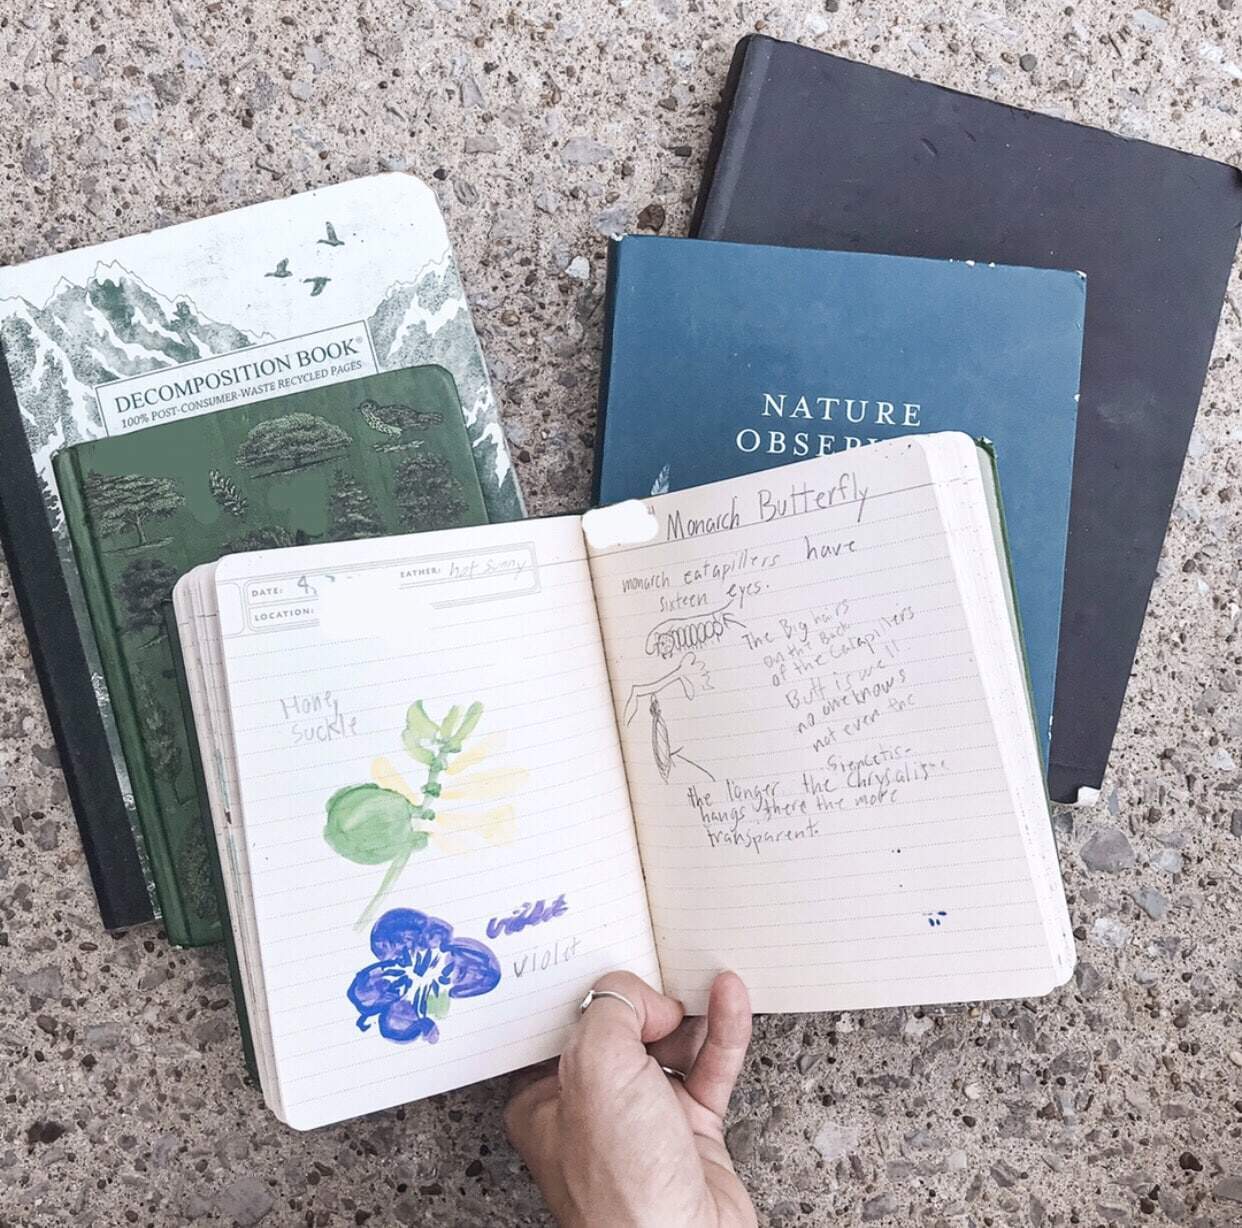 DECOMPOSITION BOOK®
100% POST-CONSUMER-WASTE RECYCLED PAGES
NATURE
DATE: 4
EATHER: hot sunny
LOCATION:
Honey
suckle
violet
violet
Monarch Butterfly
monarch catapillers have
sixteen eyes.
The Big hairs
on the Back
of the Catapillers
Butt is well
no one knows
not even the
the longer the Chrysalis
hangs there the more
transparent.